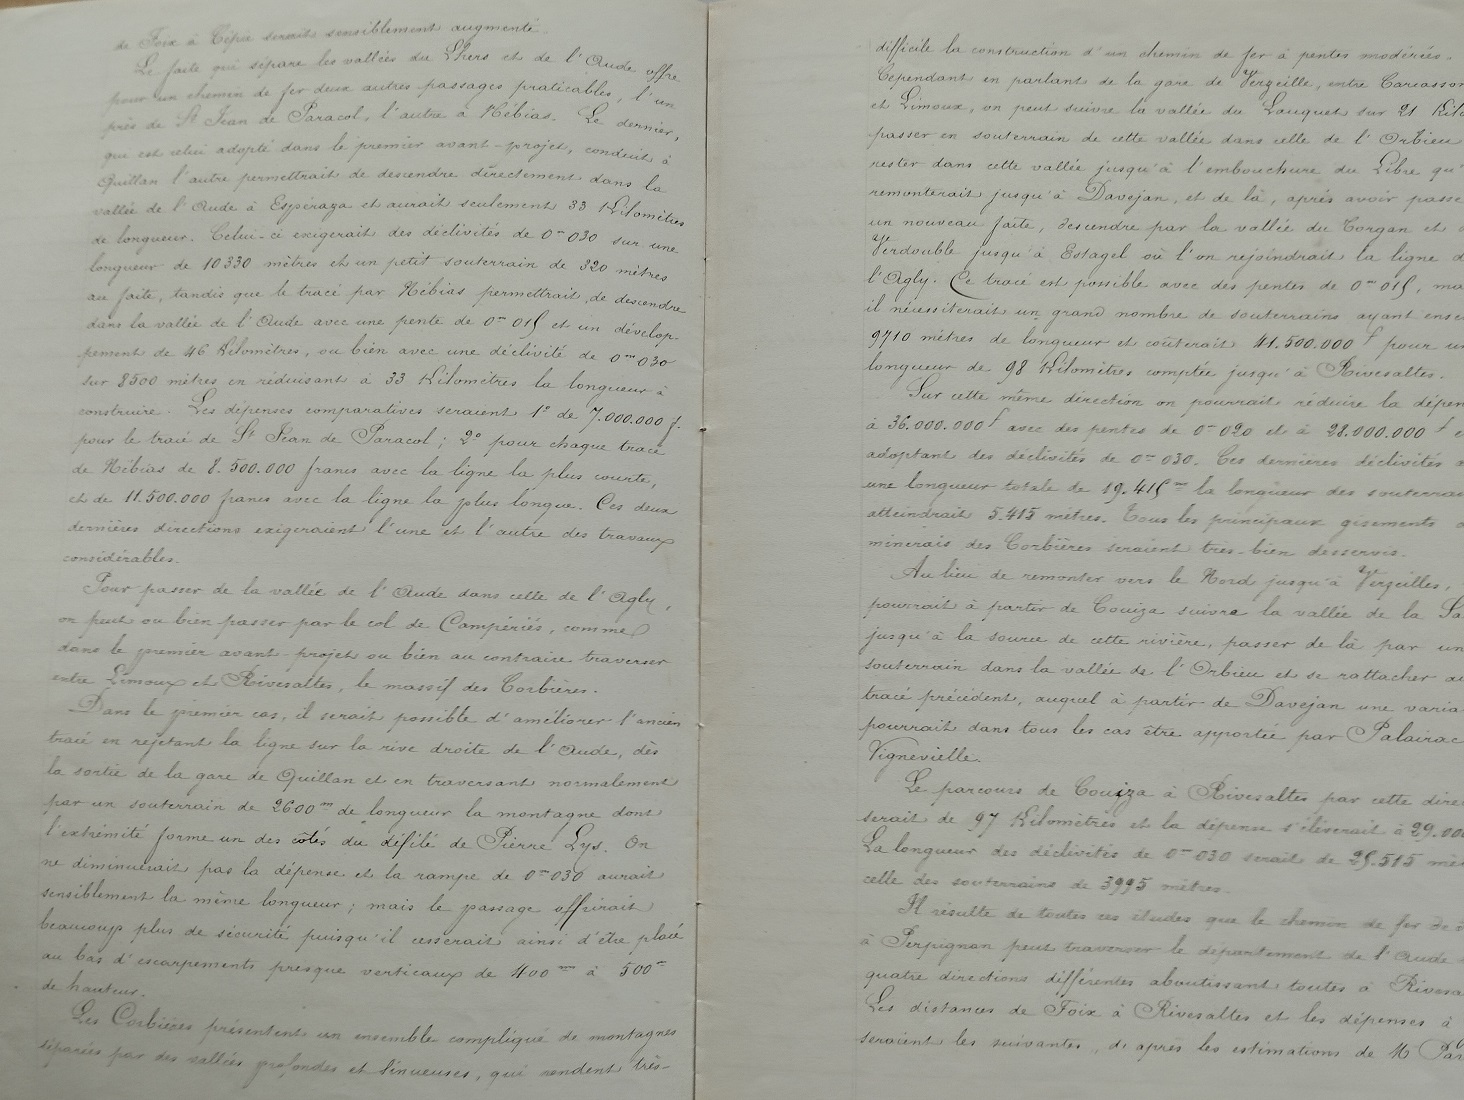 de Foix à Célès serait sensiblement augmenté.
Le faîte qui sépare les vallées du Lhers et de l'Aude offre
pour un chemin de fer deux autres passages praticables, l'un
près de St Jean de Paracol, l'autre à Nébias. Le dernier,
qui est celui adopté dans le premier avant-projet, conduit à
Quillan l'autre permettrait de descendre directement dans la
vallée de l'Aude à Espéraza et aurait seulement 33 Kilomètres
de longueur. Celui-ci exigerait des déclivités de 0m030 sur une
longueur de 10330 mètres et un petit souterrain de 320 mètres
au faîte, tandis que le tracé par Nébias permettrait de descendre
dans la vallée de l'Aude avec une pente de 0m015 et un dévelop-
pement de 46 Kilomètres, ou bien avec une déclivité de 0m030
sur 8500 mètres en réduisant à 33 Kilomètres la longueur à
construire. Les dépenses comparatives seraient 1° de 7.000.000 f.
pour le tracé de St Jean de Paracol ; 2° pour chaque tracé
de Nébias de 8.500.000 francs avec la ligne la plus courte,
et de 11.500.000 francs avec la ligne la plus longue. Ces deux
dernières directions exigeraient l'une et l'autre des travaux
considérables.
Pour passer de la vallée de l'Aude dans celle de l'Agly,
on peut ou bien passer par le col de Campériès, comme
dans le premier avant-projet ou bien au contraire traverser
entre Limoux et Rivesaltes, le massif des Corbières.
Dans le premier cas, il serait possible d'améliorer l'ancien
tracé en rejetant la ligne sur la rive droite de l'Aude, dès
la sortie de la gare de Quillan et en traversant normalement
par un souterrain de 2600m de longueur la montagne dont
l'extrémité forme un des côtés du défilé de Pierre Lys. On
ne diminuerait pas la dépense et la rampe de 0m030 aurait
sensiblement la même longueur ; mais le passage offrirait
beaucoup plus de sécurité puisqu'il cesserait ainsi d'être placé
au bas d'escarpements presque verticaux de 400m à 500m
de hauteur.
Les Corbières présentent un ensemble compliqué de montagnes
séparées par des vallées profondes et sinueuses, qui rendent très-
difficile la construction d'un chemin de fer à pentes modérées.
Cependant en partant de la gare de Verzeille, entre Carcasson
et Limoux, on peut suivre la vallée du Lauquet sur 21 Kilo
passer en souterrain de cette vallée dans celle de l'Orbieu
rester dans cette vallée jusqu'à l'embouchure du Libre qu'
remonterait jusqu'à Davejan, et de là, après avoir passé
un nouveau faîte, descendre par la vallée du Torgan et
Verdouble jusqu'à Estagel où l'on rejoindrait la ligne d
l'Agly. Ce tracé est possible avec des pentes de 0m015, ma
il nécessiterait un grand nombre de souterrains ayant ense
9710 mètres de longueur et coûterait 41.500.000 f pour un
longueur de 98 Kilomètres comptée jusqu'à Rivesaltes.
Sur cette même direction on pourrait réduire la dépen
à 36.000.000 f avec des pentes de 0m020 et à 28.000.000 f e
adoptant des déclivités de 0m030. Ces dernières déclivités a
une longueur totale de 19.415m la longueur des souterrai
atteindrait 5.415 mètres. Tous les principaux gisements d
minerais des Corbières seraient très-bien desservis.
Au lieu de remonter vers le Nord jusqu'à Verzeilles,
pourrait à partir de Couiza suivre la vallée de la Sa
jusqu'à la source de cette rivière, passer de là par un
souterrain dans la vallée de l'Orbieu et se rattacher au
tracé précédent, auquel à partir de Davejan une varia
pourrait dans tous les cas être apportée par Palairac
Vignevielle.
Le parcours de Couiza à Rivesaltes par cette direc
serait de 97 Kilomètres et la dépense s'élèverait à 29.000
La longueur des déclivités de 0m030 serait de 25.515 mèt
celle des souterrains de 3995 mètres.
Il résulte de toutes ces études que le chemin de fer de
à Perpignan peut traverser le département de l'Aude
quatre directions différentes aboutissant toutes à Rivesa
Les distances de Foix à Rivesaltes et les dépenses à
seraient les suivantes, d'après les estimations de M Par